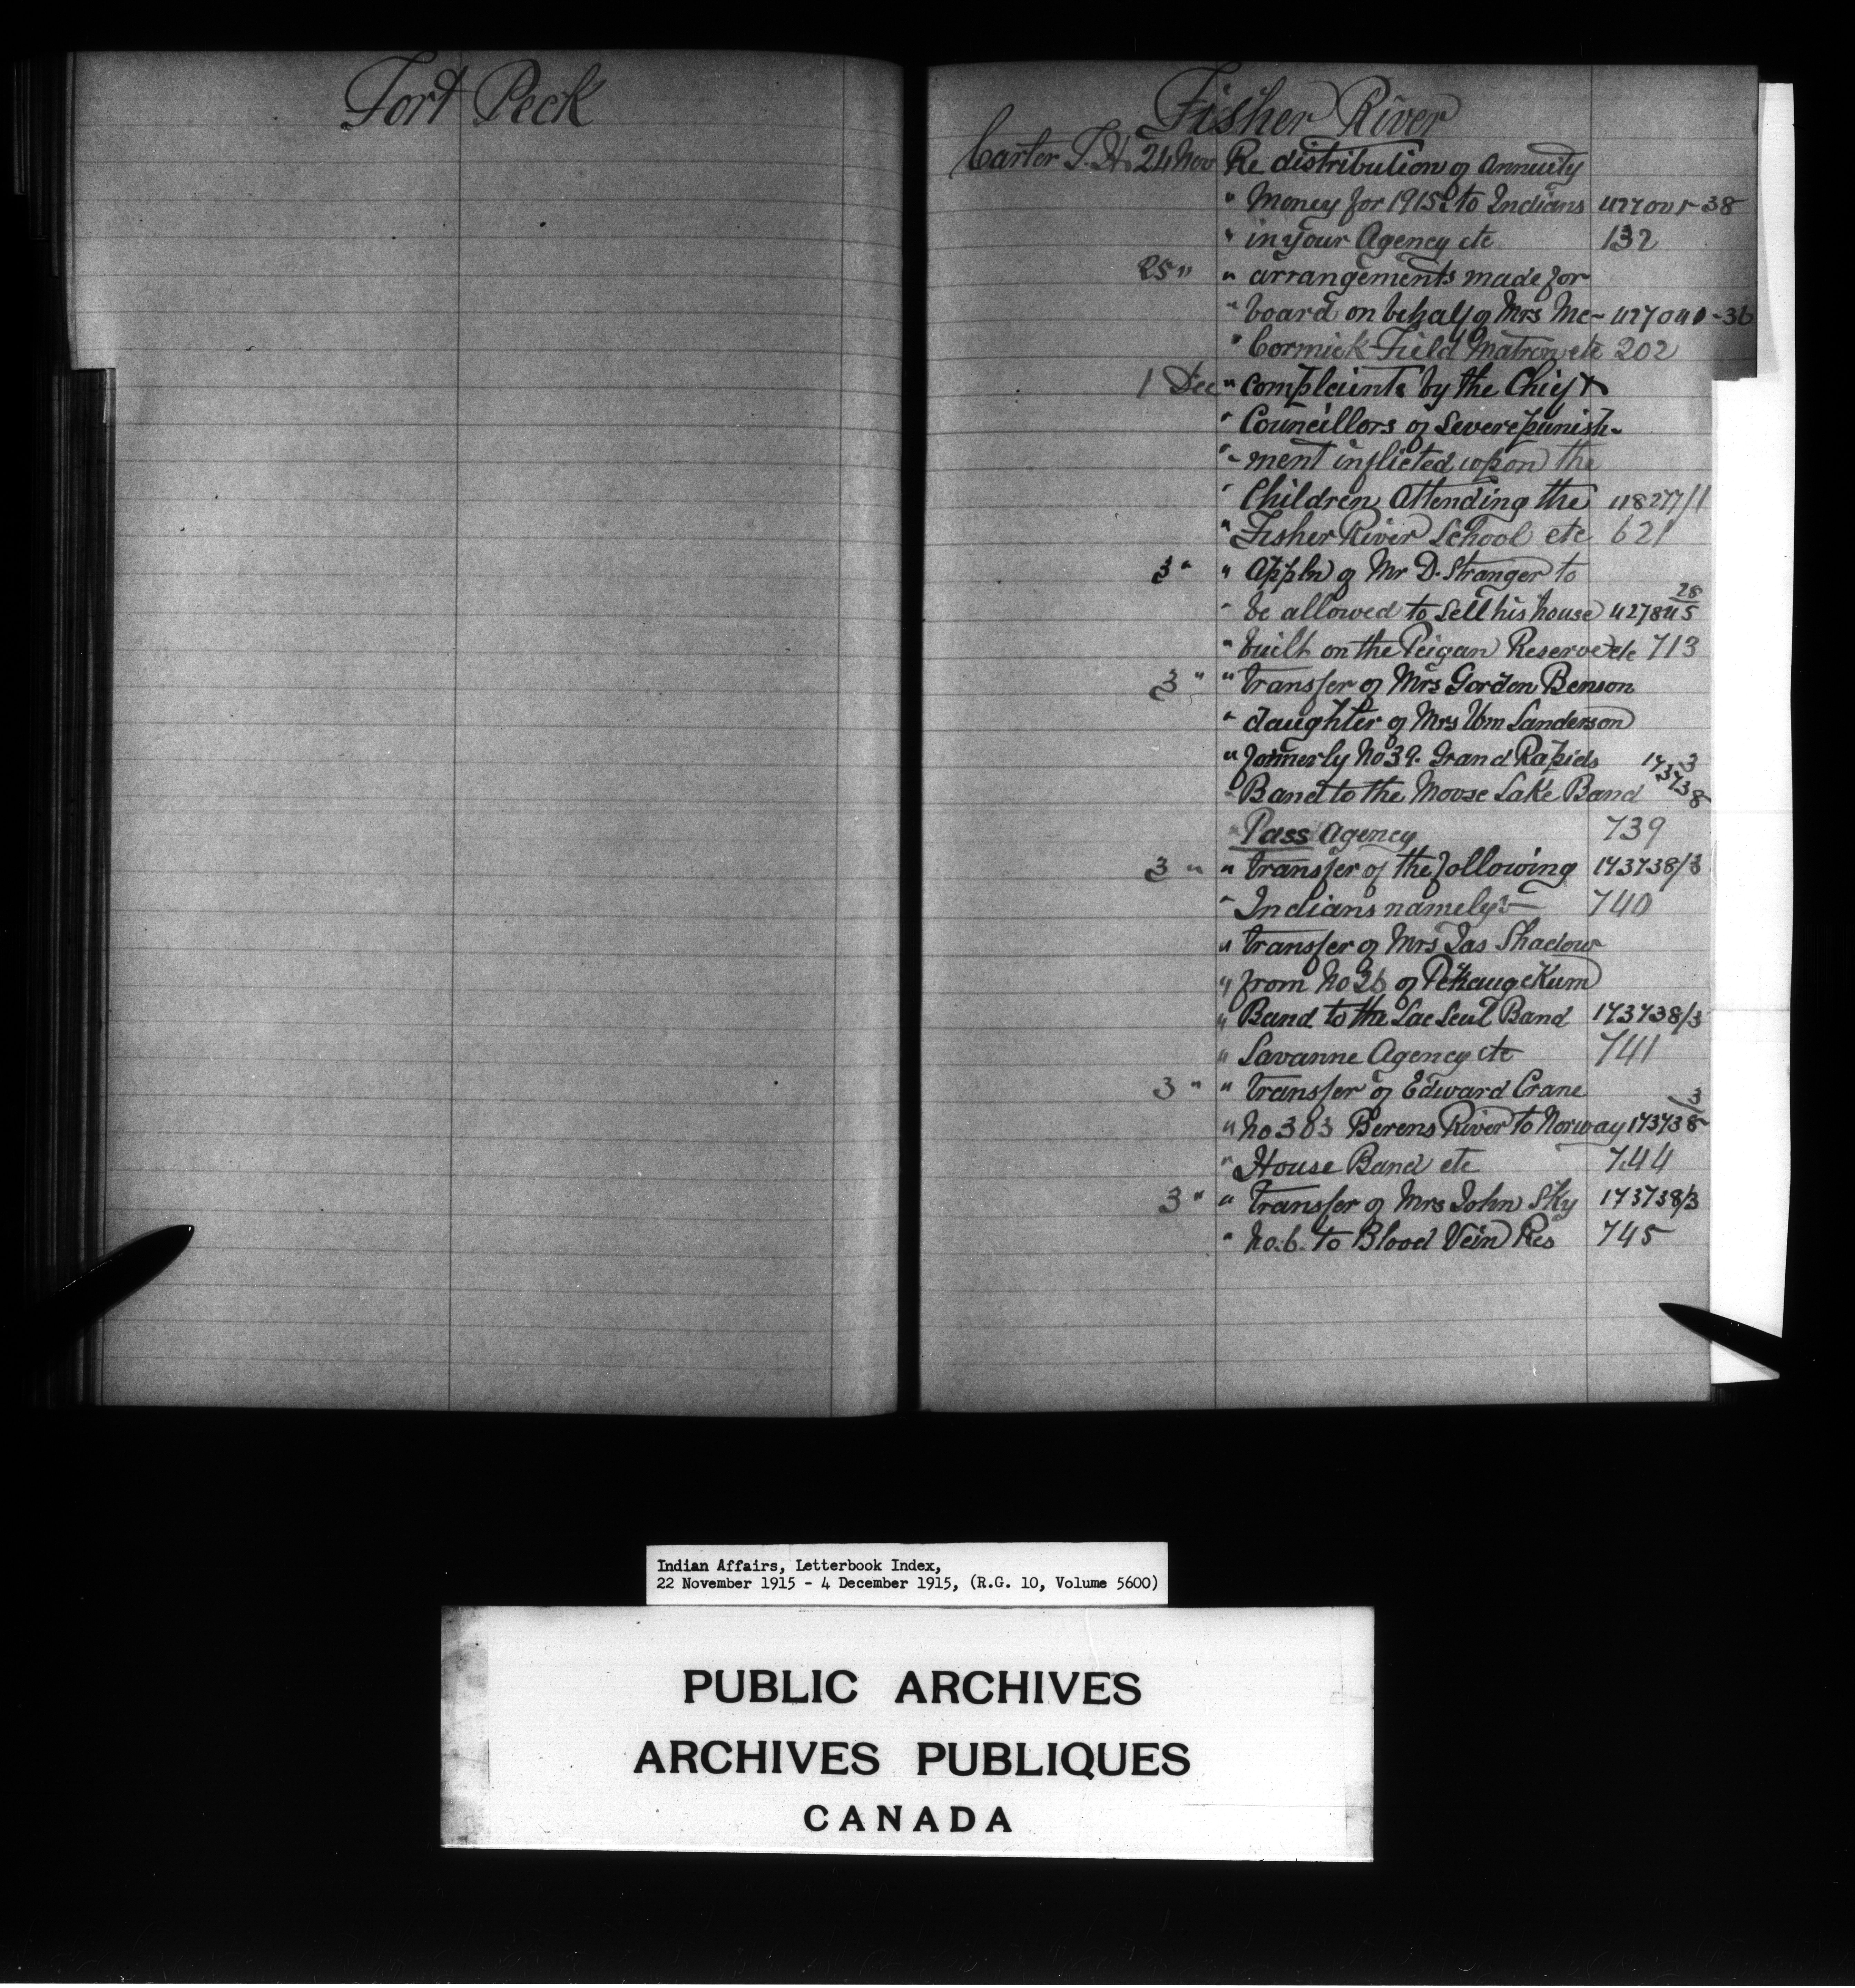 Fort Peck
Fisher River
Carter T. H. 24 Nov Re distribution of Annuity
" Money for 1915 to Indians 427001-38
" in your Agency etc 132
25 " " arrangements made for
" board on behalf of Mrs Mc- 427040-36
" Cormick Field Matron etc 202
1 Dec " complaints by the Chief &
" Councillors of Severe punish-
" - ment inflicted upon the
" Children Attending the 118277/1
" Fisher River School etc 621
3 " " Appln of Mr D. Stranger to
" be allowed to Sell his house 427845/28
" built on the Peigan Reserve etc 713
3 " " transfer of Mrs Gordon Benson
" daughter of Mrs Wm Sanderson
" formerly No 39. Grand Rapids
" Band to the Moose Lake Band 173738/3
" Pass Agency 739
3 " " transfer of the following 173738/3
" Indians namely:- 740
" transfer of Mrs Jas Shadow
" from No 26 of Pekangekum
" Band to the Lac Seul Band 173738/3
" Savanne Agency etc 741
3 " " transfer of Edward Crane
" No 303 Berens River to Norway 173738/3
" House Band etc 744
3 " " transfer of Mrs John Sky 173738/3
" No. 6. to Blood Vein Res 745
Indian Affairs, Letterbook Index,
22 November 1915 - 4 December 1915, (R.G. 10, Volume 5600)
PUBLIC ARCHIVES
ARCHIVES PUBLIQUES
CANADA